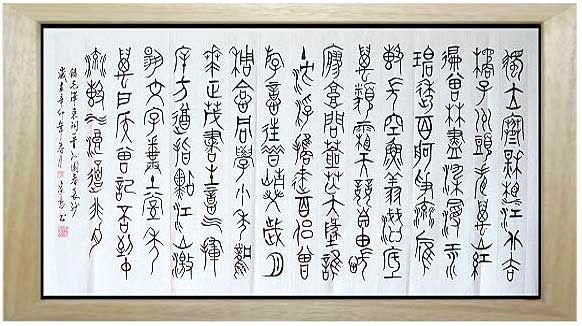 獨立寒秋湘江北去
橘子洲頭看萬山紅
遍層林盡染漫江
碧透百舸爭流鷹
擊長空魚翔淺底
萬類霜天競自由悵
寥廓問蒼茫大地誰
主沉浮攜來百侶曾
遊憶往昔崢嶸歲月
稠恰同學少年風
華正茂書生意氣揮
斥方遒指點江山激
揚文字糞土當年
萬戶侯曾記否到中
流擊水浪遏飛舟
錄毛澤東詞沁園春長沙
歲在辛卯年春月 書